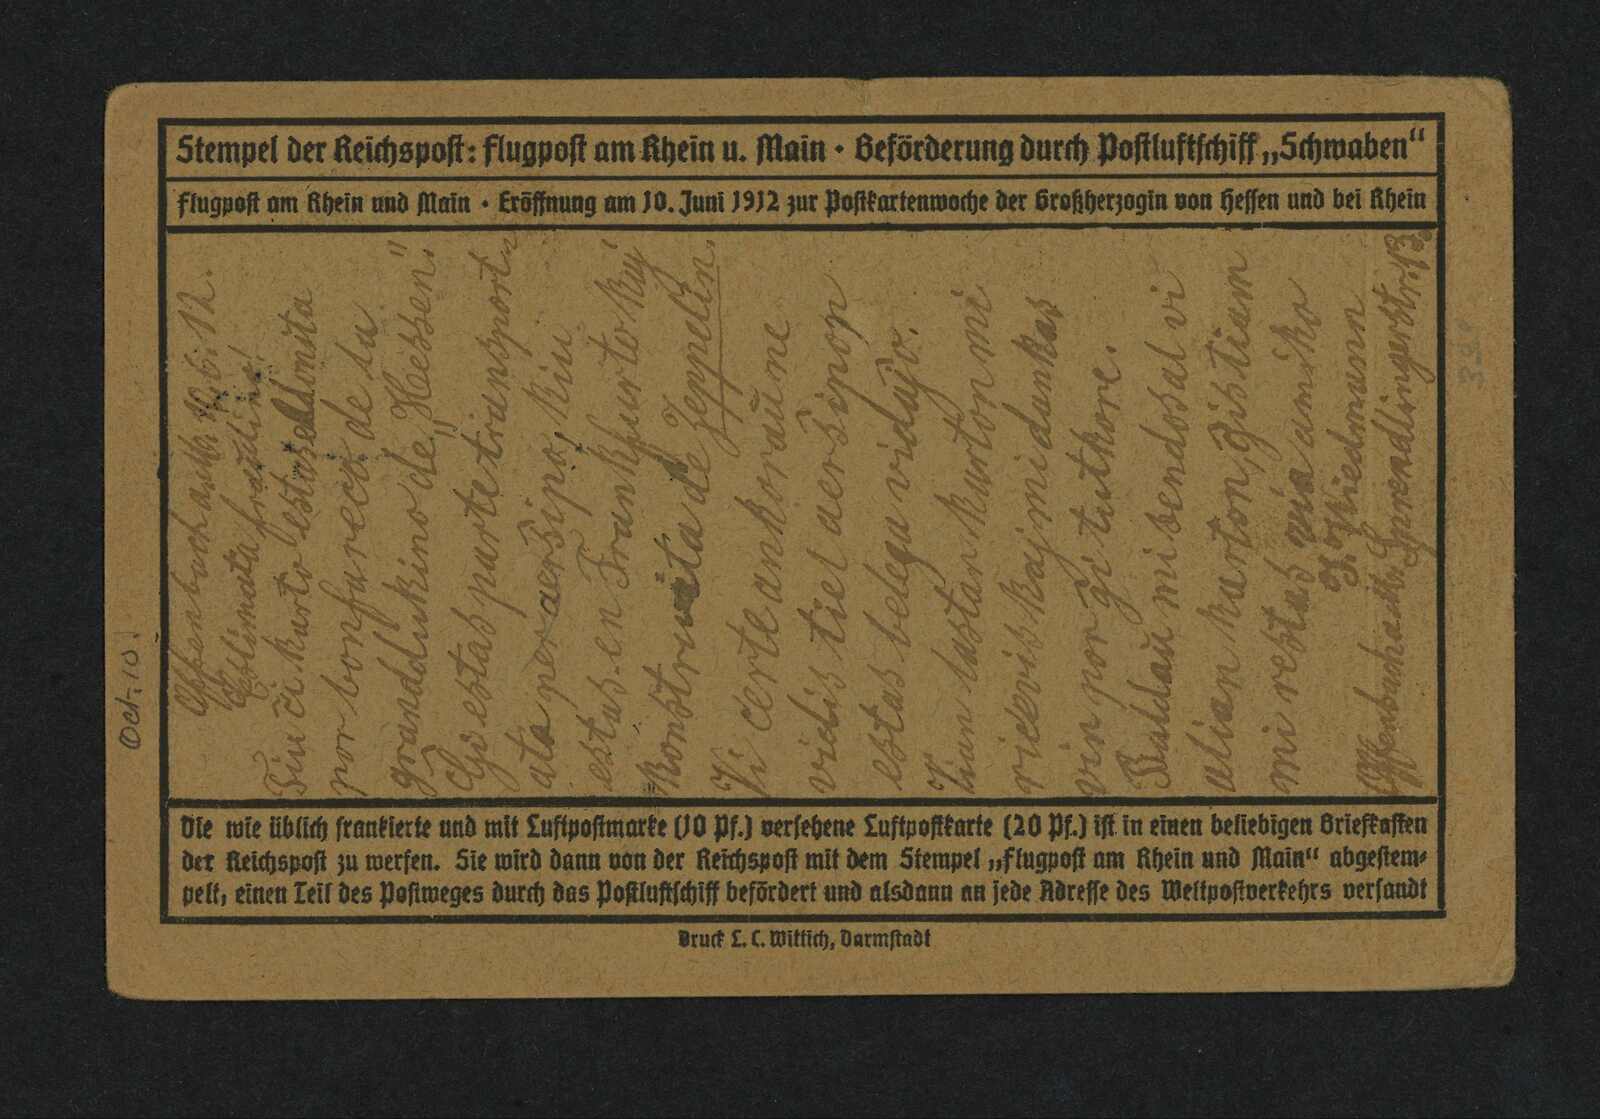 Stempel der Reichspost: Flugpost am Rhein u. Main · Beförderung durch Postluftschiff „Schwaben“
Flugpost am Rhein und Main · Eröffnung am 10. Juni 1912 zur Postkartenwoche der Großherzogin von Hessen und bei Rhein
Offenbach a./M. 12. 6. 12.
Estimata fraŭlino!
Tiu ĉi karto estas eldonita
por bonfareco de la
granddukino de „Hessen“.
Ĝi estas parte transport-
ata per aerŝipo, kiu
estas en Frankfurto kaj
konstruita de Zeppelin.
Vi certe ankoraŭ ne
vidis tiel aerŝipon,
estas belega vidajo.
Vian lastan karton mi
ricevis kaj mi dankas
vin por ĝi tutkore.
Baldaŭ mi sendosal vi
alian karton, ĝis tiam
mi restas via amiko
Offenbach a./M. Sprendlingerstr. 13.
Die wie üblich frankierte und mit Luftpostmarke (10 Pf.) versehene Luftpostkarte (20 Pf.) ist in einen beliebigen Briefkasten
der Reichspost zu werfen. Sie wird dann von der Reichspost mit dem Stempel „Flugpost am Rhein und Main“ abgestem-
pelt, einen Teil des Postweges durch das Postluftschiff befördert und alsdann an jede Adresse des Weltpostverkehrs versandt
Druck L. C. Wittich, Darmstadt
Oct. 10!